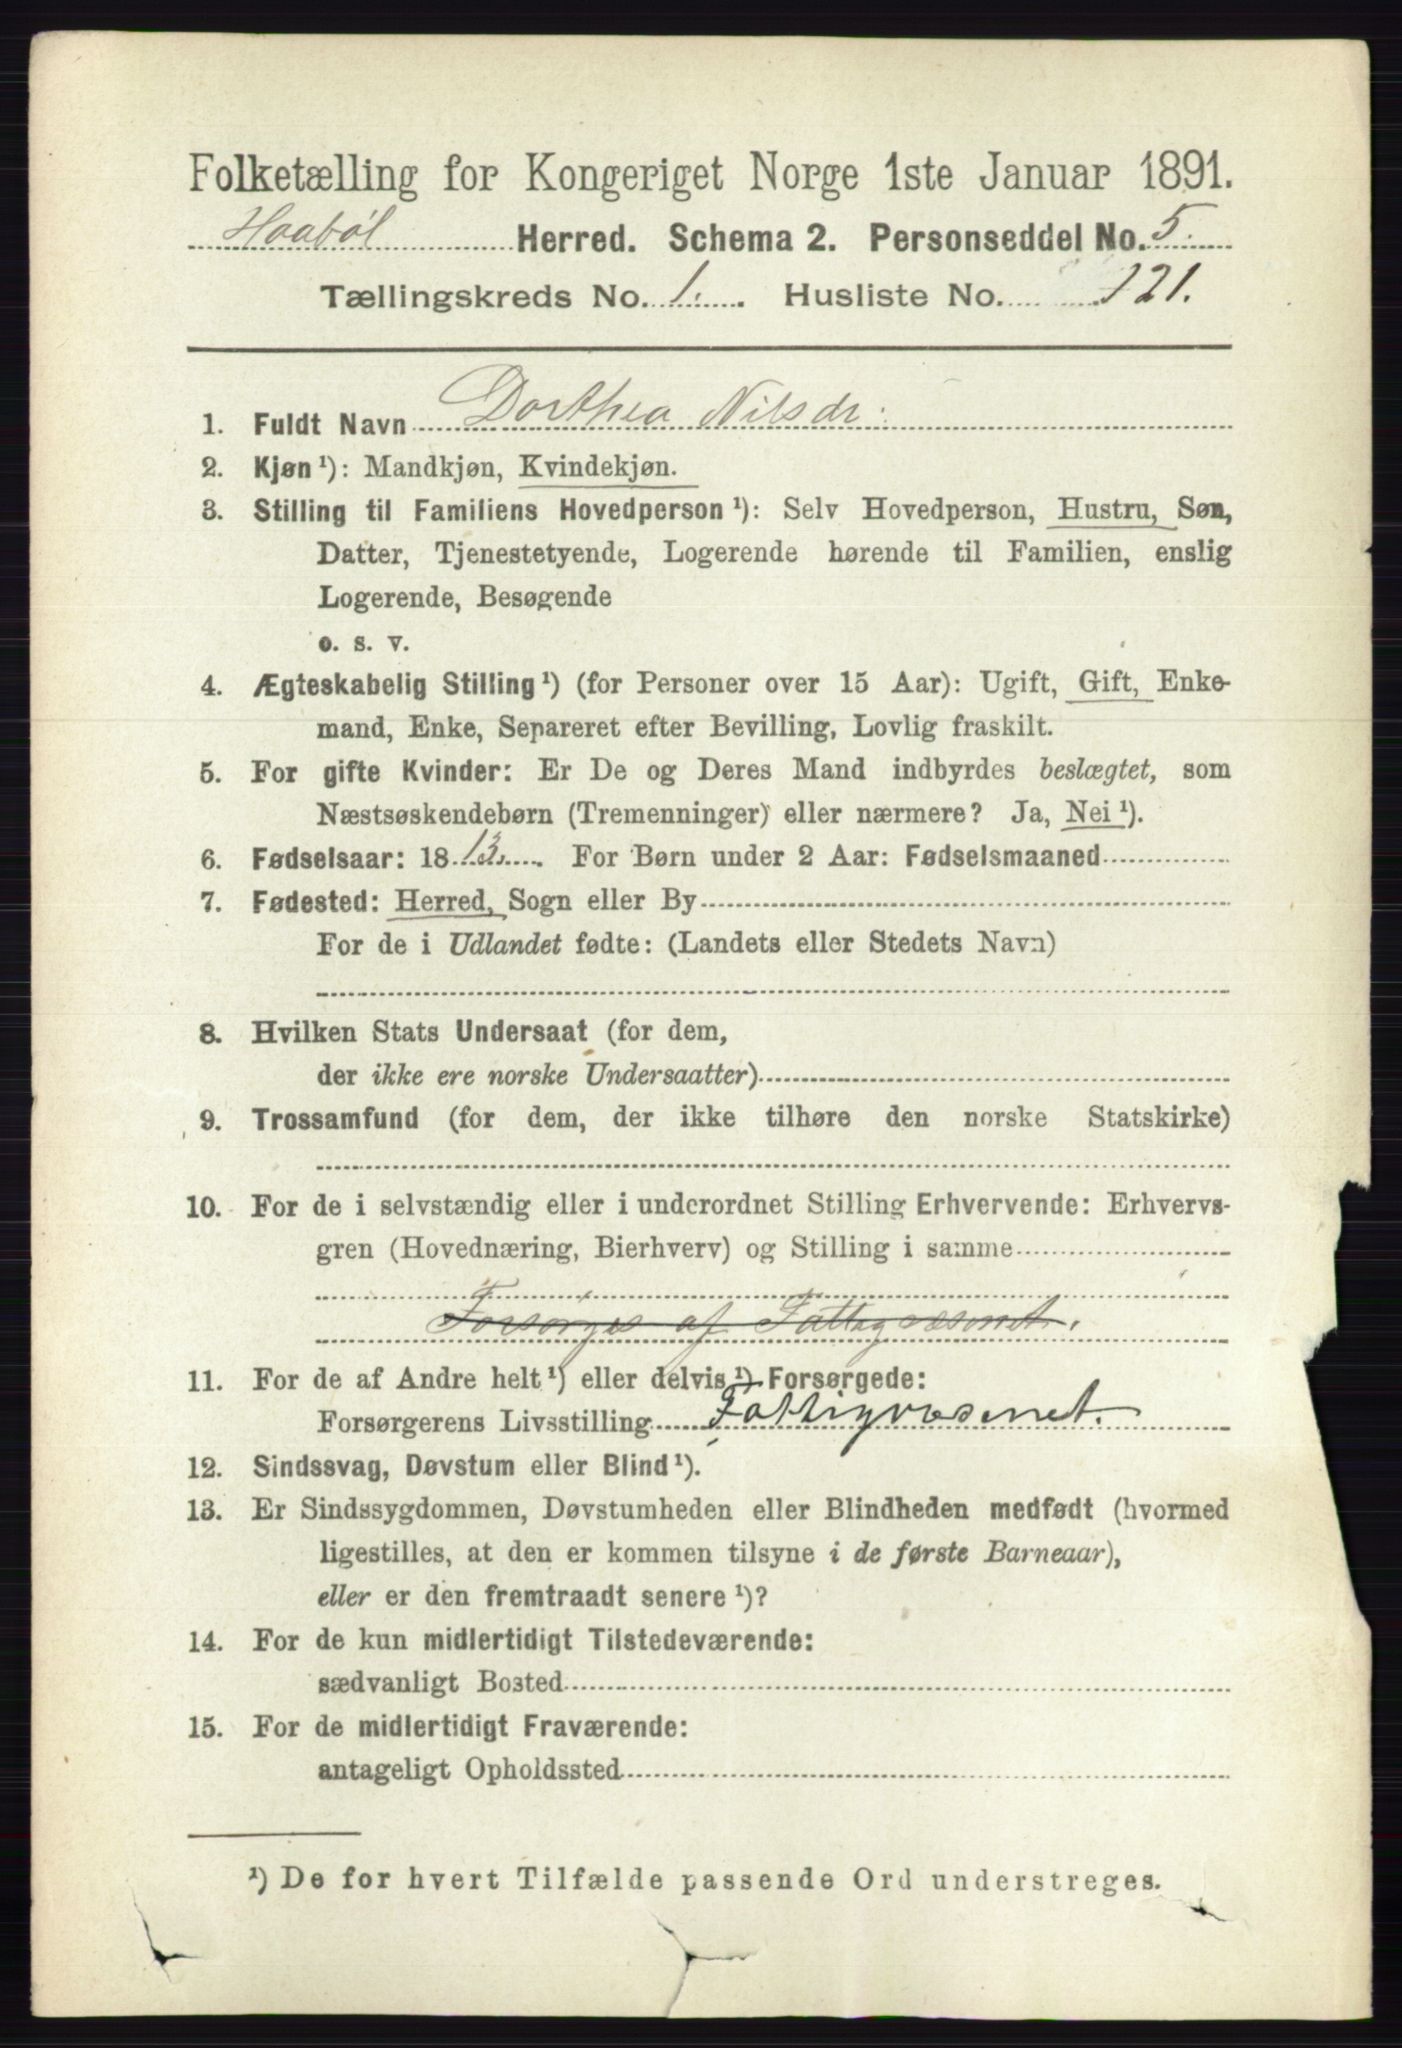 Folketælling for Kongeriget Norge 1ste Januar 1891.
Haabøl Herred. Schema 2. Personseddel No. 5.
Tællingskreds No. 1. Husliste No. 121.
1. Fuldt Navn Dorthea Nilsdr:
2. Kjøn ¹): Mandkjøn, Kvindekjøn.
3. Stilling til Familiens Hovedperson ¹): Selv Hovedperson, Hustru, Søn,
Datter, Tjenestetyende, Logerende hørende til Familien, enslig
Logerende, Besøgende
o. s. v.
4. Ægteskabelig Stilling ¹) (for Personer over 15 Aar): Ugift, Gift, Enke-
mand, Enke, Separeret efter Bevilling, Lovlig fraskilt.
5. For gifte Kvinder: Er De og Deres Mand indbyrdes beslægtet, som
Næstsøskendebørn (Tremenninger) eller nærmere? Ja, Nei ¹).
6. Fødselsaar: 1813. For Børn under 2 Aar: Fødselsmaaned
7. Fødested: Herred, Sogn eller By
For de i Udlandet fødte: (Landets eller Stedets Navn)
8. Hvilken Stats Undersaat (for dem,
der ikke ere norske Undersaatter)
9. Trossamfund (for dem, der ikke tilhøre den norske Statskirke)
10. For de i selvstændig eller i underordnet Stilling Erhvervende: Erhvervs-
gren (Hovednæring, Bierhverv) og Stilling i samme
Forsørges af Fattigvæsenet.
11. For de af Andre helt ¹) eller delvis ¹) Forsørgede:
Forsørgerens Livsstilling Fattigvæsenet.
12. Sindssvag, Døvstum eller Blind ¹).
13. Er Sindssygdommen, Døvstumheden eller Blindheden medfødt (hvormed
ligestilles, at den er kommen tilsyne i de første Barneaar),
eller er den fremtraadt senere ¹)?
14. For de kun midlertidigt Tilstedeværende:
sædvanligt Bosted
15. For de midlertidigt Fraværende:
antageligt Opholdssted
¹) De for hvert Tilfælde passende Ord understreges.